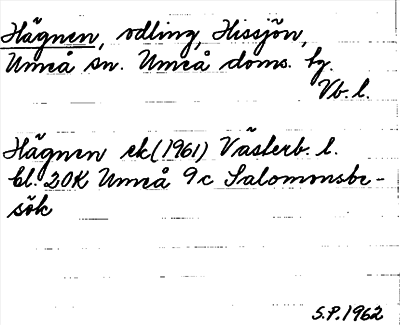 Hägnen, odling, Hissjön,
Umeå sn. Umeå doms. tg.
Vb. l.
Hägnen ek (1961) Västerb. l.
bl. 20K Umeå 9c Salomonsbe-
sök
S.P. 1962